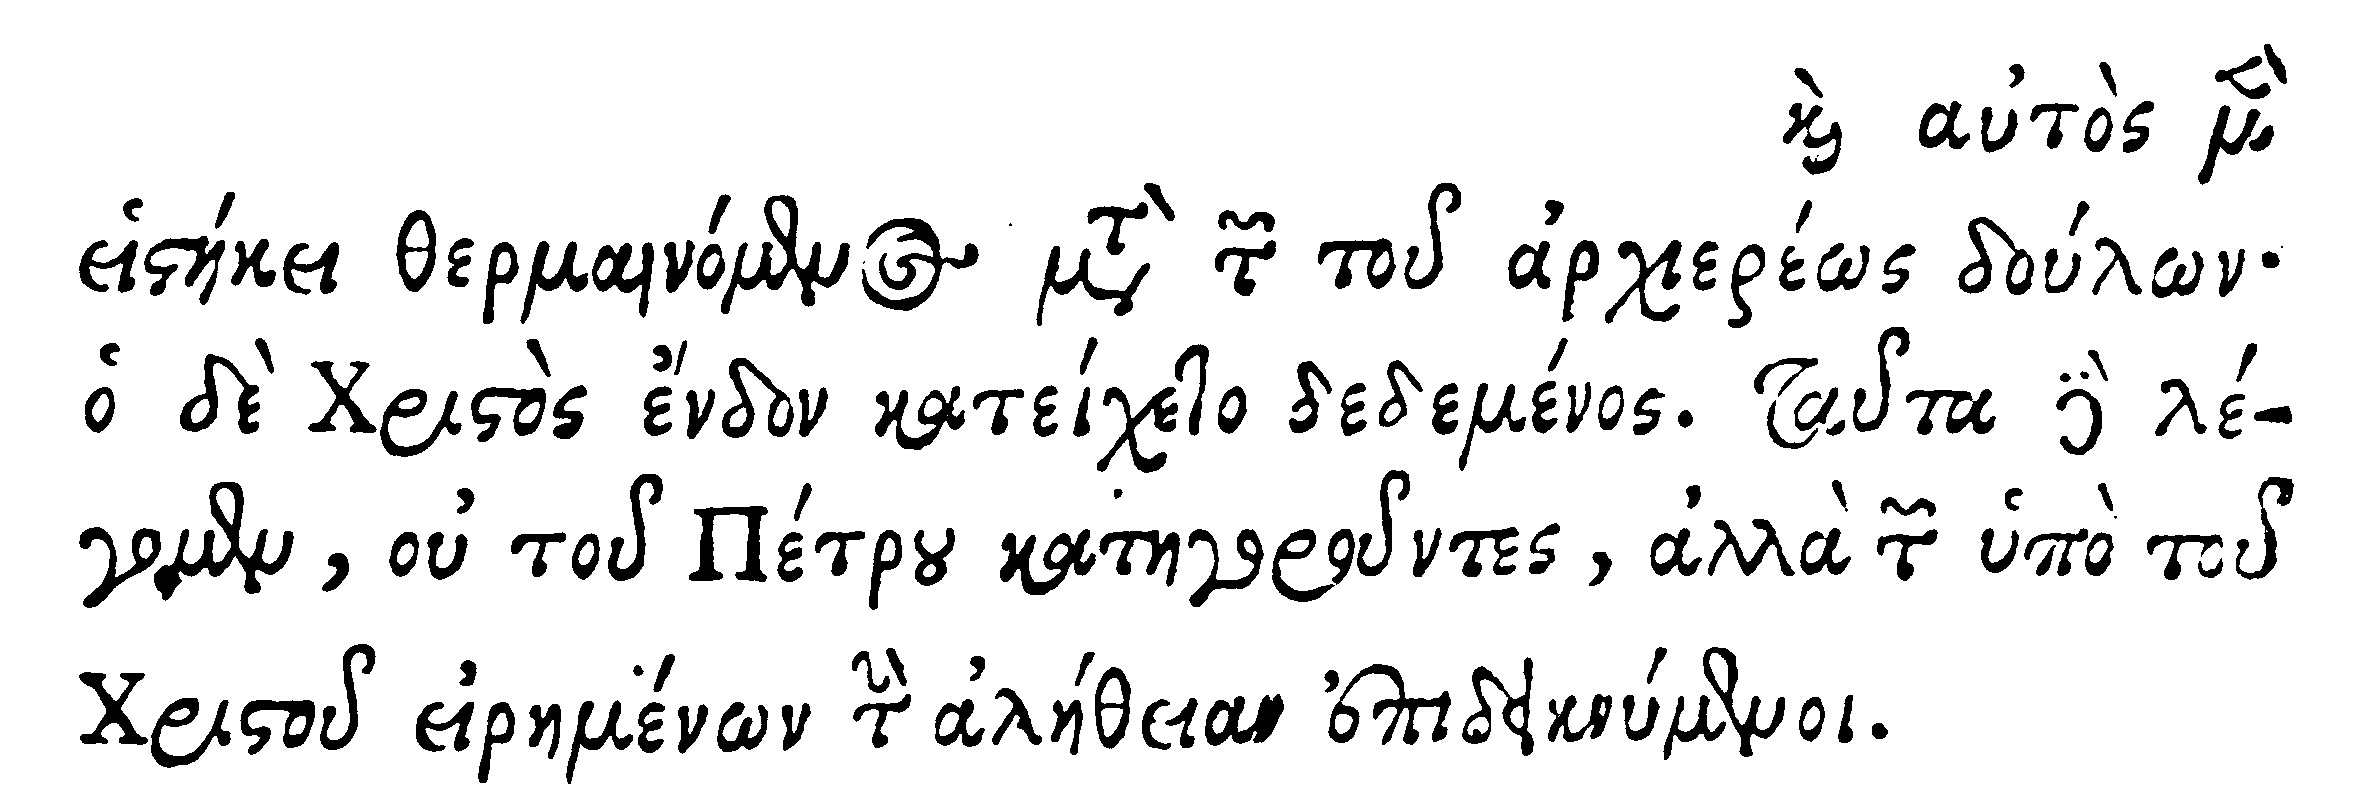 καὶ αὐτὸς μὲν
εἱστήκει θερμαινόμενος μετὰ τῶν τοῦ ἀρχιερέως δούλων·
ὁ δὲ Χριστὸς ἔνδον κατείχετο δεδεμένος. Ταῦτα δὲ λέ-
γομεν, οὐ τοῦ Πέτρου κατηγοροῦντες, ἀλλὰ τῶν ὑπὸ τοῦ
Χριστοῦ εἰρημένων τὴν ἀλήθειαν ἐπιδεικνύμενοι.